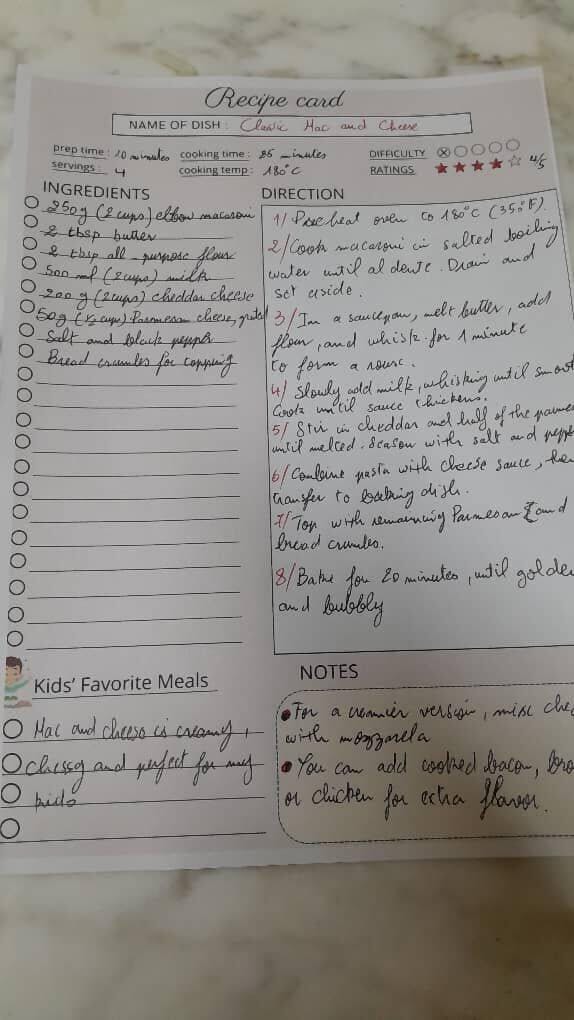 Recipe card
NAME OF DISH : Classic Mac and Cheese
prep time : 10 minutes cooking time : 25 minutes DIFFICULTY
servings : 4 cooking temp : 180°C RATINGS 4/5
INGREDIENTS
250g (2 cups) elbow macaroni
2 tbsp butter
2 tbsp all-purpose flour
500 ml (2 cups) milk
200 g (2 cups) cheddar cheese
50g (1/2 cup) Parmesan cheese, grated
Salt and black pepper
Bread crumbs for topping
DIRECTION
1/ Preheat oven to 180°C (350°F).
2/ Cook macaroni in salted boiling
water until al dente. Drain and
set aside.
3/ In a saucepan, melt butter, add
flour, and whisk for 1 minute
to form a roux.
4/ Slowly add milk, whisking until smoot
Cook until sauce thickens.
5/ Stir in cheddar and half of the parme
until melted. Season with salt and peppe
6/ Combine pasta with cheese sauce, the
transfer to baking dish.
7/ Top with remaining Parmesan and
bread crumbs.
8/ Bake for 20 minutes, until golde
and bubbly
Kids' Favorite Meals
Mac and cheese is creamy,
cheesy and perfect for my
kids
NOTES
For a creamier version, mix che
with mozzarela
You can add cooked bacon, bro
or chicken for extra flavor.